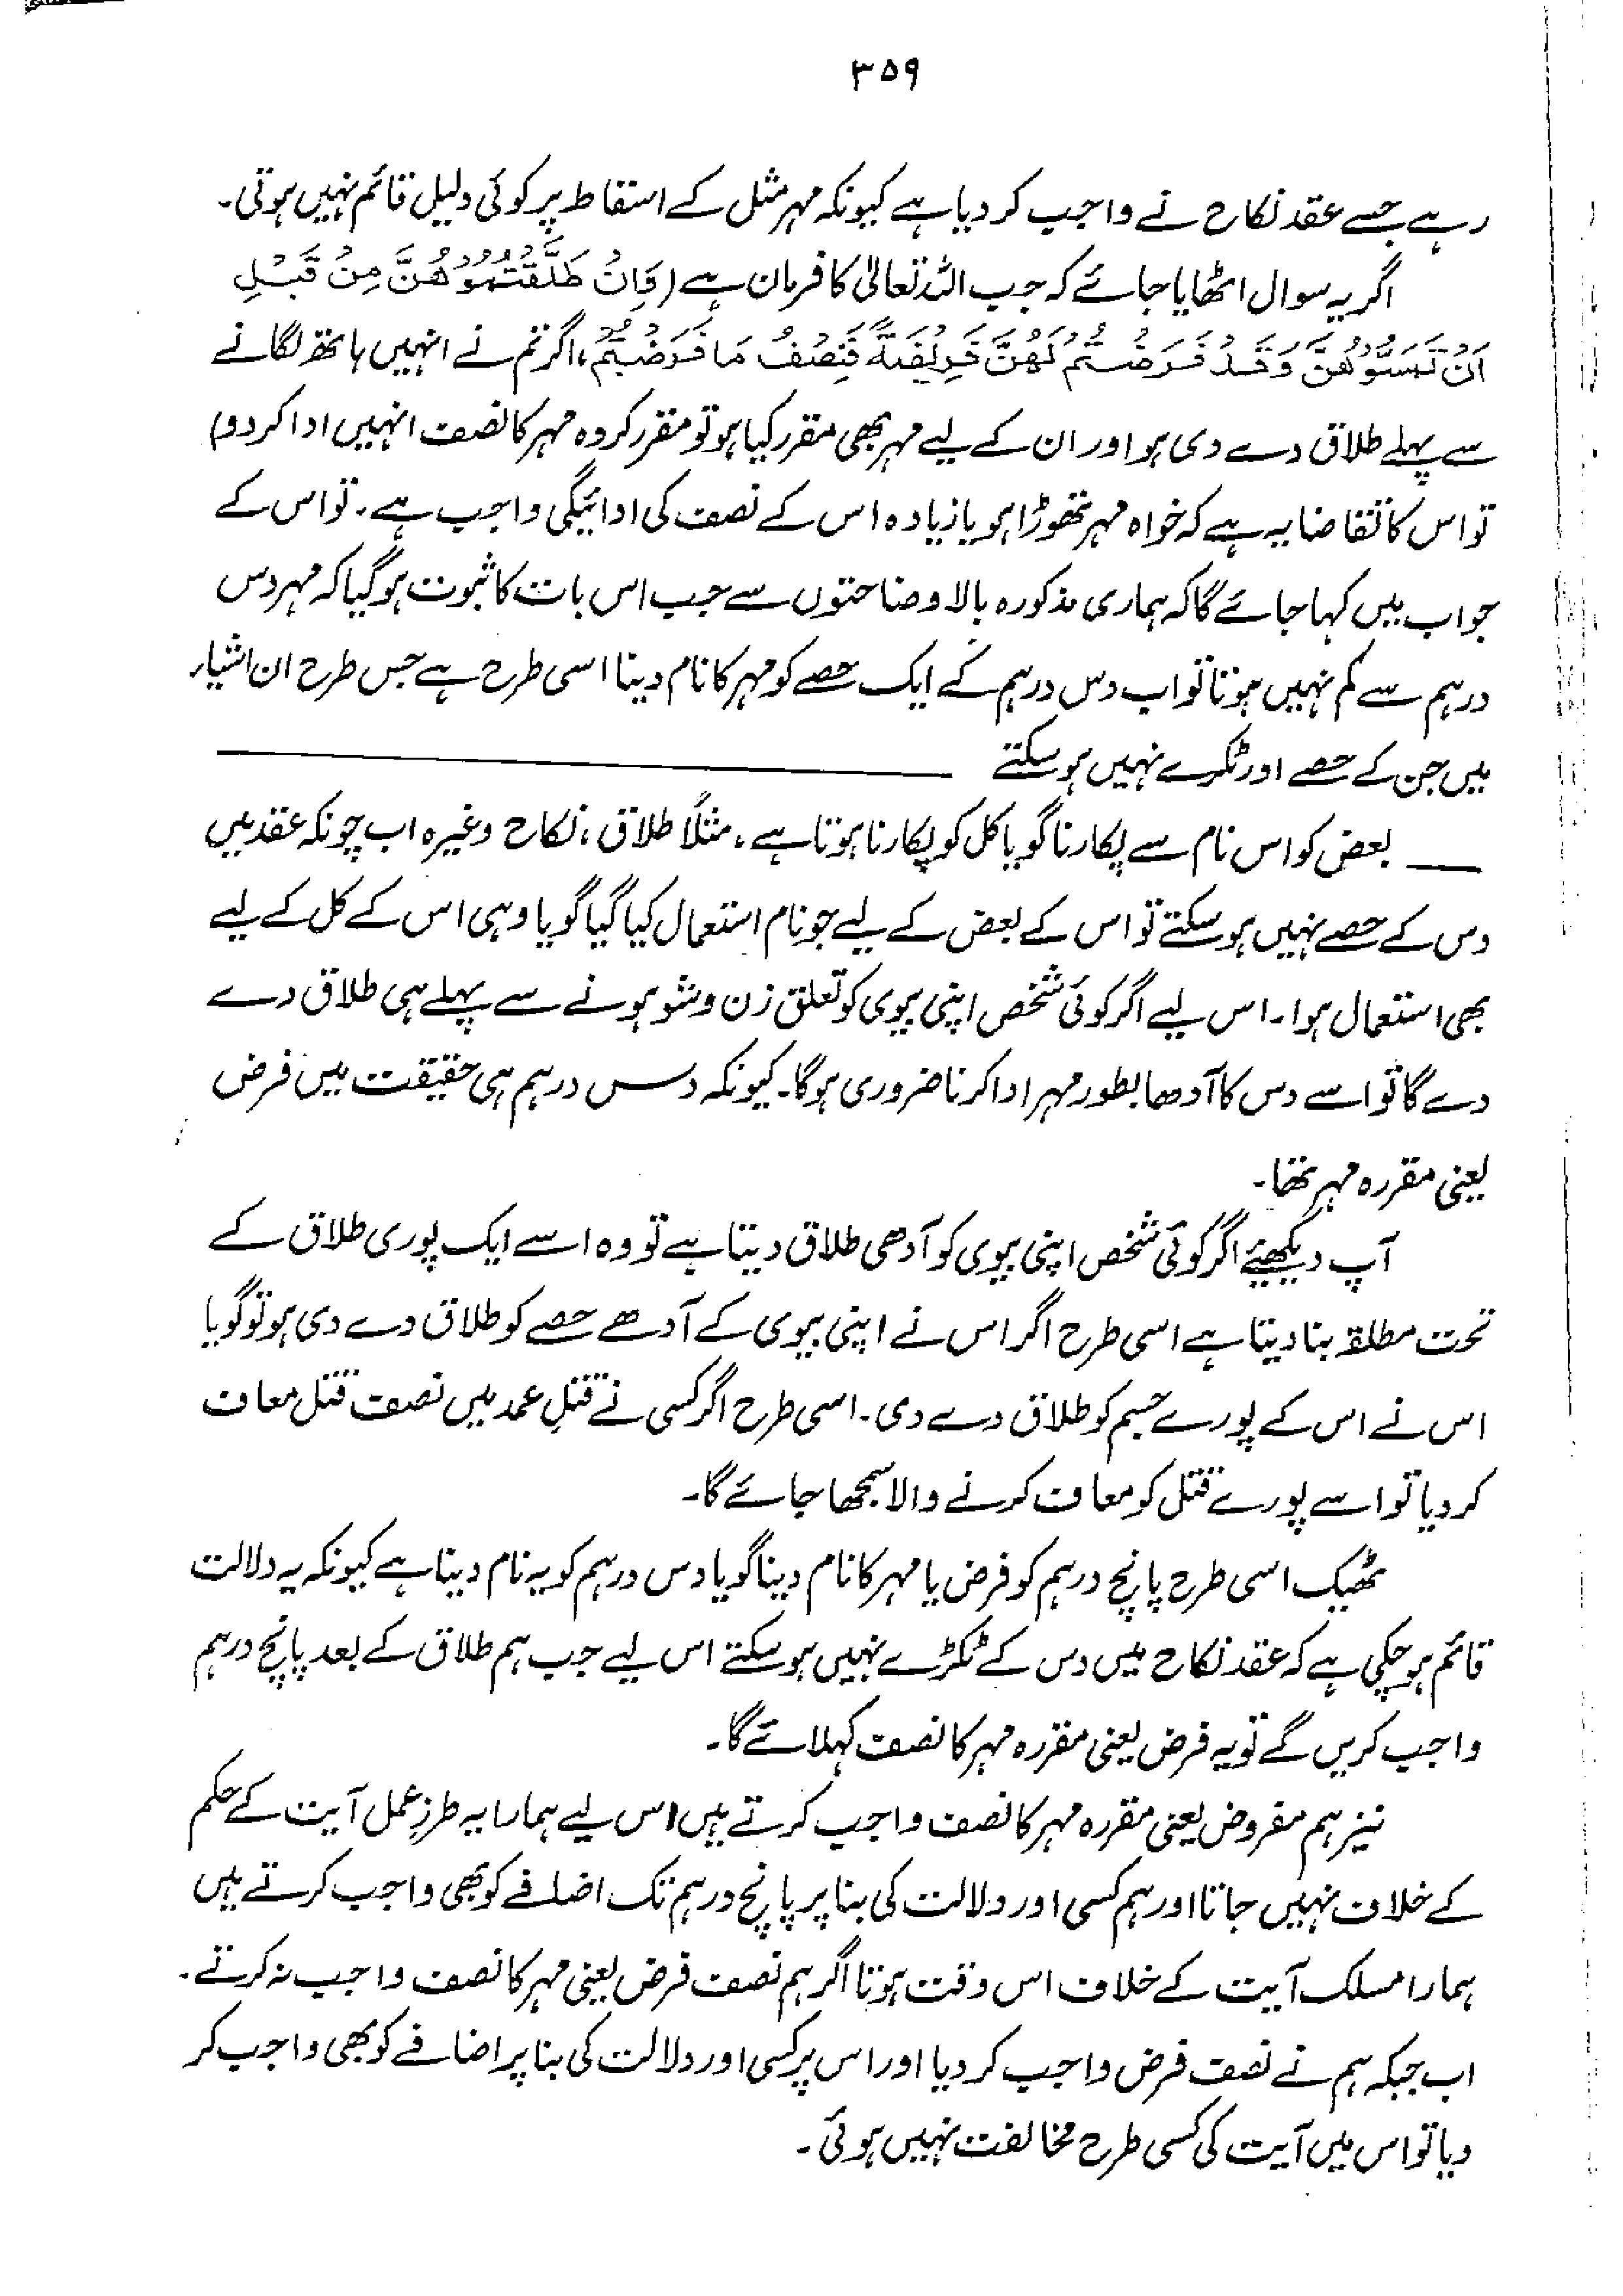 ۳۵۹
رہے جسے عقد نکاح نے واجب کر دیا ہے کیونکہ مہر مثل کے اسقاط پر کوئی دلیل قائم نہیں ہوتی۔
اگر یہ سوال اٹھایا جائے کہ جب اللہ تعالیٰ کا فرمان ہے (فَاِنْ طَلَّقْتُمُوْهُنَّ مِنْ قَبْلِ
اَنْ تَمَسُّوْهُنَّ وَقَدْ فَرَضْتُمْ لَهُنَّ فَرِيْضَةً فَنِصْفُ مَا فَرَضْتُمْ، اگر تم نے انہیں ہاتھ لگانے
سے پہلے طلاق دے دی ہو اور ان کے لیے مہر بھی مقرر کیا ہو تو مقرر کردہ مہر کا نصف انہیں ادا کر دو)
تو اس کا تقاضا یہ ہے کہ خواہ مہر تھوڑا ہو یا زیادہ اس کے نصف کی ادائیگی واجب ہے۔ تو اس کے
جواب میں کہا جائے گا کہ ہماری مذکورہ بالا وضاحتوں سے جب اس بات کا ثبوت ہو گیا کہ مہر دس
درہم سے کم نہیں ہوتا تو اب دس درہم کے ایک حصے کو مہر کا نام دینا اسی طرح ہے جس طرح ان اشیاء
میں جن کے حصے اور ٹکرے نہیں ہو سکتے ــــــــ
ــــ بعض کو اس نام سے پکارنا گویا کل کو پکارنا ہوتا ہے، مثلاً طلاق، نکاح وغیرہ اب چونکہ عقد میں
دس کے حصے نہیں ہو سکتے تو اس کے بعض کے لیے جو نام استعمال کیا گیا گویا وہی اس کے کل کے لیے
بھی استعمال ہوا۔ اس لیے اگر کوئی شخص اپنی بیوی کو تعلق زن و شو ہونے سے پہلے ہی طلاق دے
دے گا تو اسے دس کا آدھا بطور مہر ادا کرنا ضروری ہوگا۔ کیونکہ دس درہم ہی حقیقت میں فرض
یعنی مقررہ مہر تھا۔
آپ دیکھیئے اگر کوئی شخص اپنی بیوی کو آدھی طلاق دیتا ہے تو وہ اسے ایک پوری طلاق کے
تحت مطلقہ بنا دیتا ہے اسی طرح اگر اس نے اپنی بیوی کے آدھے حصے کو طلاق دے دی ہو تو گویا
اس نے اس کے پورے جسم کو طلاق دے دی۔ اسی طرح اگر کسی نے قتلِ عمد میں نصف قتل معاف
کر دیا تو اسے پورے قتل کو معاف کرنے والا سمجھا جائے گا۔
ٹھیک اسی طرح پانچ درہم کو فرض یا مہر کا نام دینا گویا دس درہم کو یہ نام دینا ہے کیونکہ یہ دلالت
قائم ہو چکی ہے کہ عقد نکاح میں دس کے ٹکڑے نہیں ہو سکتے اس لیے جب ہم طلاق کے بعد پانچ درہم
واجب کریں گے تو یہ فرض یعنی مقررہ مہر کا نصف کہلائے گا۔
نیز ہم مفروض یعنی مقررہ مہر کا نصف واجب کرتے ہیں اس لیے ہمارا یہ طرزِ عمل آیت کے حکم
کے خلاف نہیں جاتا اور ہم کسی اور دلالت کی بنا پر پانچ درہم تک اضافے کو بھی واجب کرتے ہیں
ہمارا مسلک آیت کے خلاف اس وقت ہوتا اگر ہم نصف فرض یعنی مہر کا نصف واجب نہ کرتے۔
اب جبکہ ہم نے نصف فرض واجب کر دیا اور اس پر کسی اور دلالت کی بنا پر اضافے کو بھی واجب کر
دیا تو اس میں آیت کی کسی طرح مخالفت نہیں ہوئی۔